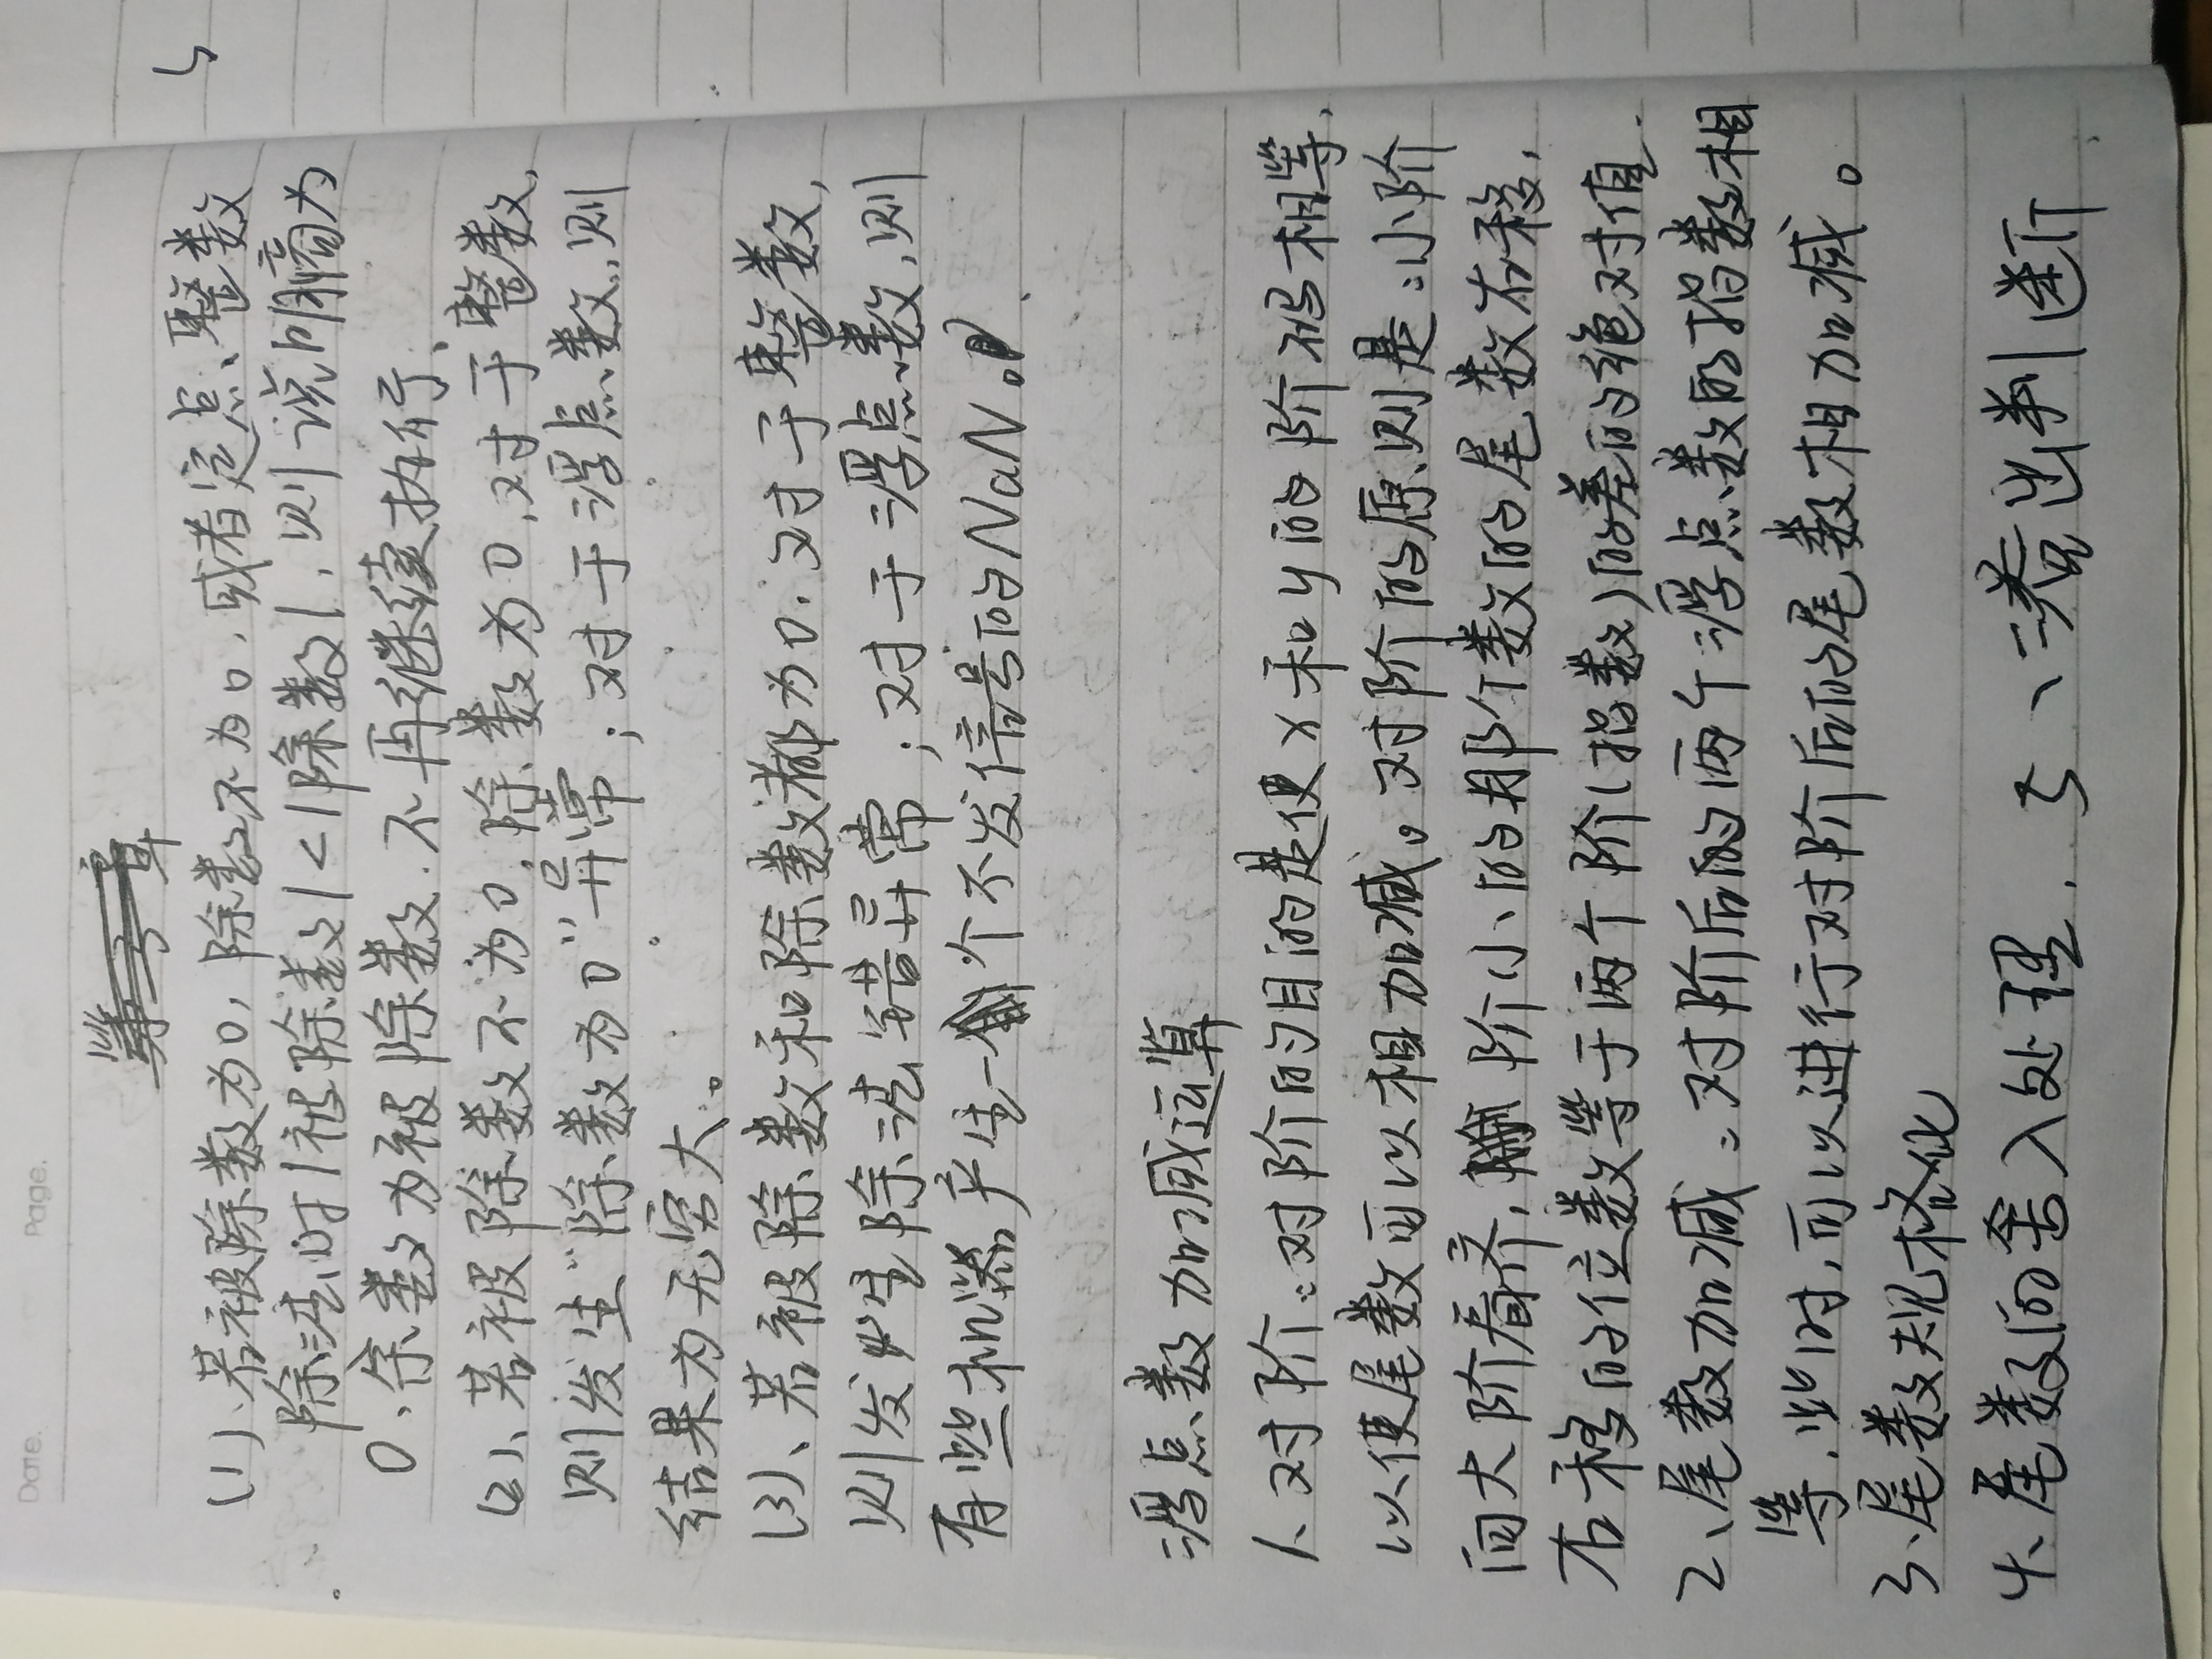 Date.
Page.
(1)、若被除数为0,除数不为0,或者定点、整数
除法时|被除数|<|除数|,则说明商为
0、余数为被除数.不再继续执行、
(2)、若被除数不为0.除数为0,对于整数,
则发生"除数为0"异常;对于浮点数,则
结果为无穷大。
(3)、若被除数和除数都为0.对于整数,
则发生除法错异常;对于浮点数,则
有些机器产生一个不发信号的NaN。
浮点数加减运算
1、对阶:对阶的目的是使x和y的阶码相等,
以使尾数可以相加减。对阶的原则是:小阶
向大阶看齐,阶小的那个数的尾数右移,
右移的位数等于两个阶(指数)的差的绝对值.
2、尾数加减:对阶后的两个浮点数的指数相
等.此时,可以进行对阶后的尾数相加减。
3、尾数规格化
4、尾数的舍入处理. 5、溢出判断